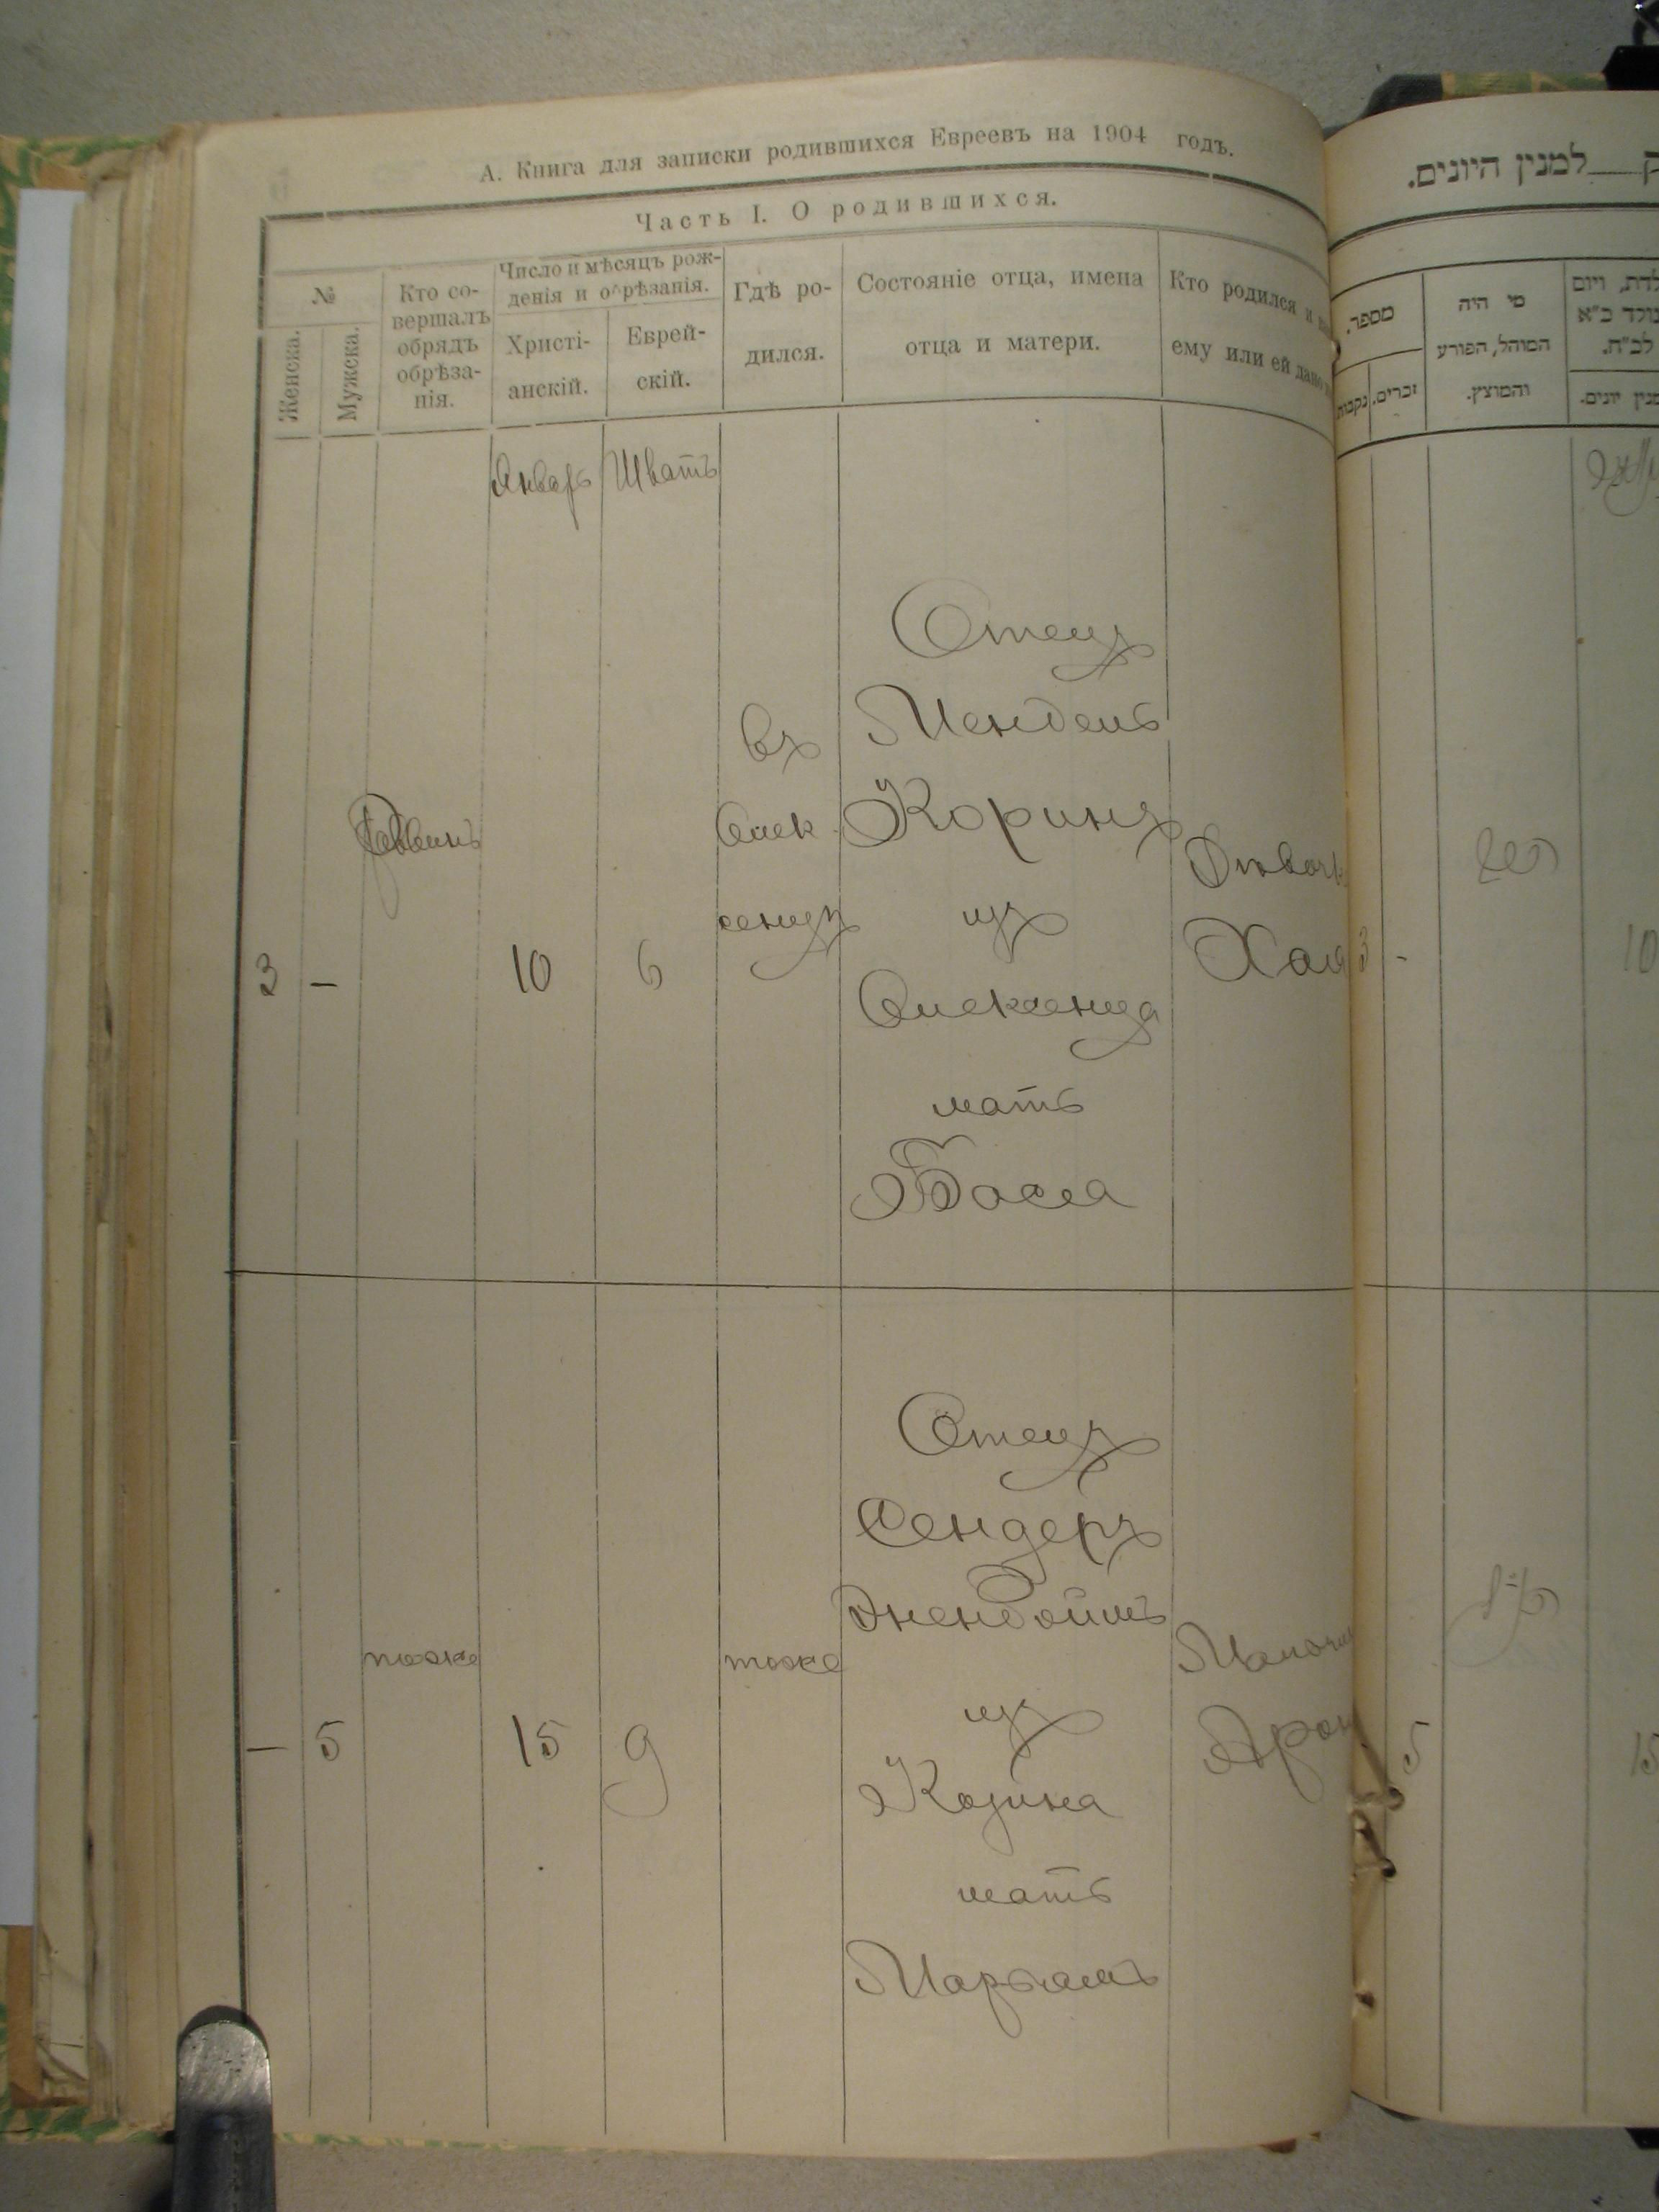 А. Книга для записки родившихся Евреевъ на 1904 годъ.
Часть I. О родившихся.
№
Женска.
Мужска.
Кто со-
вершалъ
обрядъ
обрѣза-
нія.
Число и мѣсяцъ рож-
денія и обрѣзанія.
Христі-
анскій.
Еврей-
скій.
Гдѣ ро-
дился.
Состояніе отца, имена
отца и матери.
Кто родился и
ему или ей дано
Январь
Шватъ
3
–
10
6
въ
Олек
сенцѣ
Отецъ
Мендель
Коринъ
изъ
Олексенца
мать
Бася
Хая
–
5
тоже
15
9
тоже
Отецъ
Сендеръ
изъ
Козина
мать
Марьямъ
Арон
למנין היונים.
מספר.
נקבות
זכרים.
מי היה
המוהל, הפורע
והמוצץ.
3
-
10
5
15